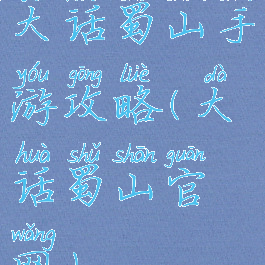 大话蜀山手
yóu gōng lüè dà
游攻略(大
huà shǔ shān guān
话蜀山官
wǎng
网)